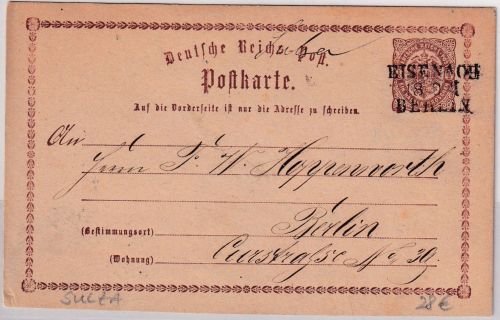 Deutsche Reichs-Post.
Postkarte.
EISENACH
BERLIN
Auf die Vorderseite ist nur die Adresse zu schreiben.
An
Herrn F. W. Hoppenworth
Berlin
(Bestimmungsort)
Curstraße No 30.
(Wohnung)
SULZA
28€